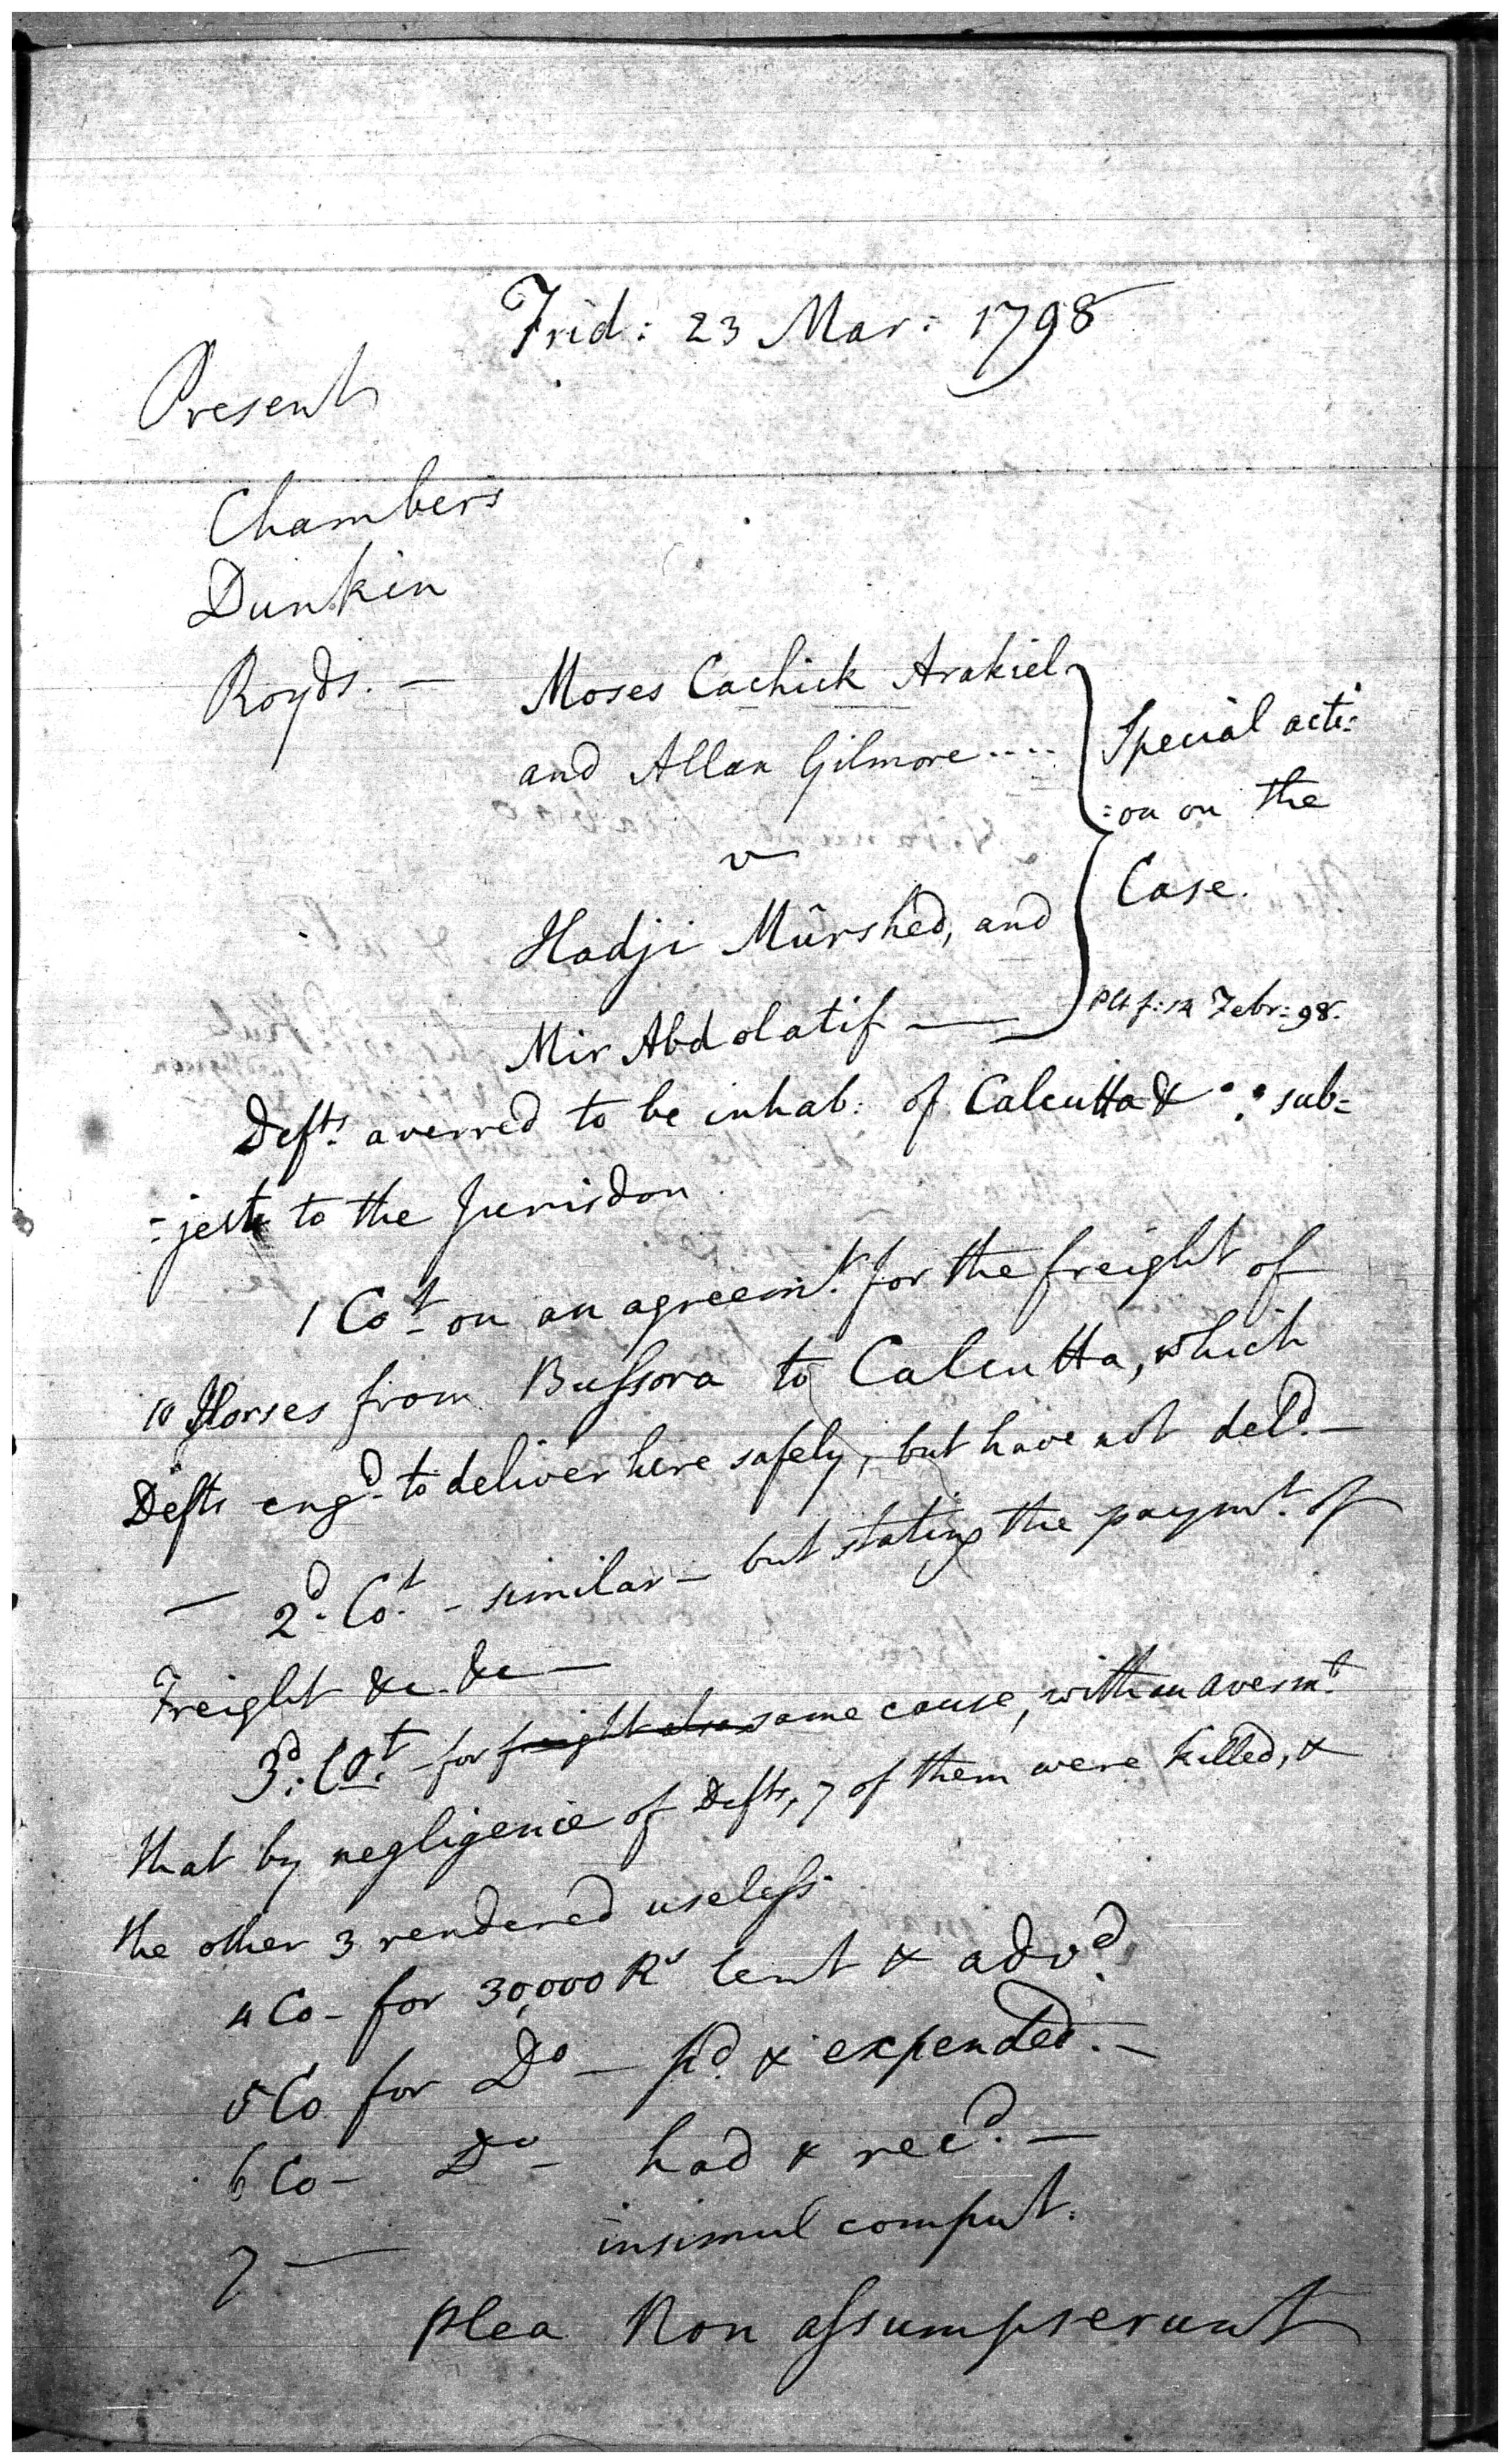 Frid: 23 Mar: 1798
Present
Chambers
Dunkin
Royds. —
Moses Cachick Arakiel
and Allan Gilmore ....
v
Hadji Mûrshed, and
Mir Abdolatif —
Special acti=
=on on the
Case.
12 Febr: 98.
Defts. averred to be inhab: of Calcutta & sub=
=ject to the Jurisdon
1 Cot. on an agreemt. for the freight of
10 Horses from Bussora to Calcutta, which
Defts engd. to deliver here safely, but have not deld. —
— 2d. Cot. - similar — but stating the paymt. of
Freight &c. &c —
3d. Cot. - for freight also same cause, with an avermt.
that by negligence of Defts, 7 of them were killed, &
the other 3 rendered useless.
4 Co - for 30,000 Rs lent & advd.
5 Co for Do — pd. & expended. —
6 Co - Do - had & recd. —
7 — insimul comput:
plea Non assumpserunt